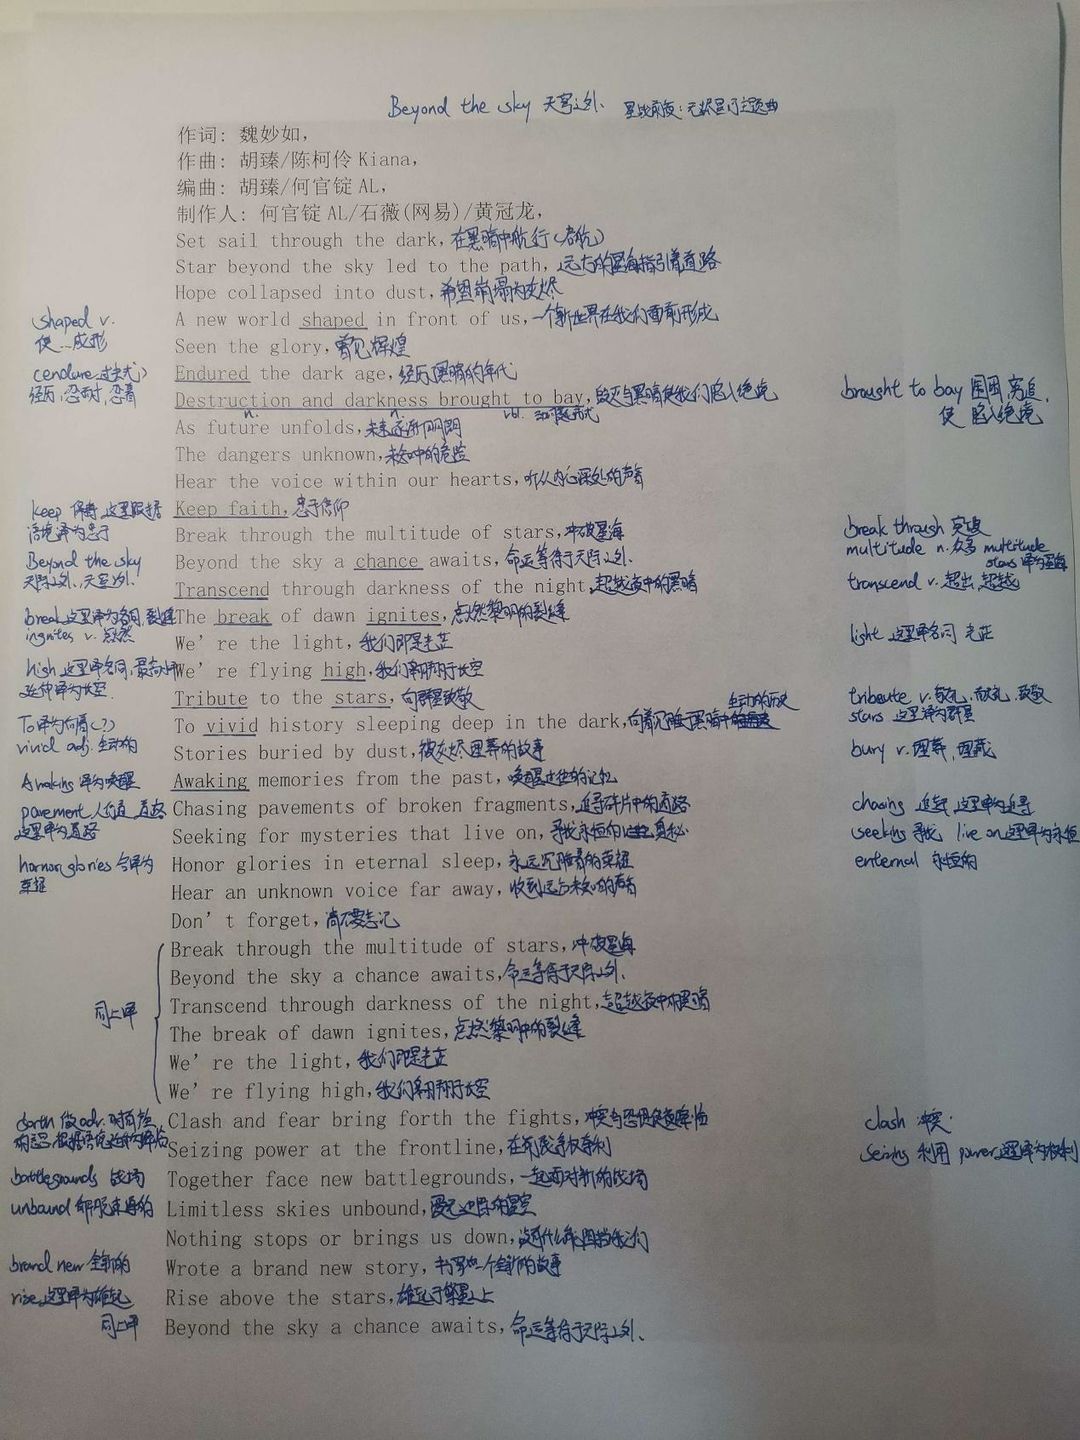 Beyond the sky 天穹之外、 星战前夜:无烬星河主题曲
作词: 魏妙如,
作曲: 胡臻/陈柯伶 Kiana,
编曲: 胡臻/何官锭 AL,
制作人: 何官锭 AL/石薇(网易)/黄冠龙,
Set sail through the dark, 在黑暗中航行(启航)
Star beyond the sky led to the path, 远方的星海指引着道路
Hope collapsed into dust, 希望崩塌为灰烬
shaped v. A new world shaped in front of us, 一个新世界在我们面前形成
使…成形 Seen the glory, 曾见辉煌
(endure 过去式) Endured the dark age, 经历黑暗的年代
经历,忍耐,忍着 Destruction and darkness brought to bay, 毁灭与黑暗使我们陷入绝境 brought to bay 围困,穷追,
n. n. vbl. 动词过去形式 使 陷入绝境
As future unfolds, 未来逐渐开朗
The dangers unknown, 未知中的危险
Hear the voice within our hearts, 听从内心深处的声音
keep 保持,这里跟据 Keep faith, 忠于信仰
语境译为忠于 Break through the multitude of stars, 冲破星海 break through 突破
Beyond the sky Beyond the sky a chance awaits, 命运等待于天际之外、 multitude n.众多 multitude
天际之外,天穹之外、 stars 译为星海
Transcend through darkness of the night, 超越夜中的黑暗 transcend v. 超出,超越
break 这里译为名词,裂缝 The break of dawn ignites, 点燃黎明的裂缝
ingnites v. 点燃 We're the light, 我们即是光芒 light 这里译名词 光芒
high 这里译名词,最高水平 We're flying high, 我们翱翔于长空
延伸译为长空 Tribute to the stars, 向群星致敬 生动的历史 tribeute v.敬礼,献礼,致敬
To译为向着(?) To vivid history sleeping deep in the dark, 向着沉睡于黑暗中 stars 这里译为群星
vivid adj. 生动的 Stories buried by dust, 被灰烬埋葬的故事 bury v.埋葬,埋藏
Awaking 译为唤醒 Awaking memories from the past, 唤醒过往的记忆
pavement 人行道,道路 Chasing pavements of broken fragments, 追寻碎片中的道路 chasing 追逐 这里译为追寻
这里译为道路 Seeking for mysteries that live on, 寻找永恒的奥秘 seeking 寻找 live on 这里译为永恒
hornor glories 合译为 Honor glories in eternal sleep, 永远沉睡着的荣耀 enternal 永恒的
荣耀 Hear an unknown voice far away, 收到远方未知的声音
Don't forget, 尚不要忘记
Break through the multitude of stars, 冲破星海
Beyond the sky a chance awaits, 命运等待于天际之外、
同上译 Transcend through darkness of the night, 超越夜中的黑暗
The break of dawn ignites, 点燃黎明中的裂缝
We're the light, 我们即是光芒
We're flying high, 我们翱翔于长空
forth 做adv. Clash and fear bring forth the fights, 冲突与恐惧使 降临 clash 冲突.
Seizing power at the frontline, 在前线争权夺利 seizing 利用 power 这里译为权利
battlegrounds 战场 Together face new battlegrounds, 一起面对新的战场
unbound 解脱束缚的 Limitless skies unbound, 无边际的星空
Nothing stops or brings us down, 没有什么能阻挡我们
brand new 全新的 Wrote a brand new story, 书写出一个全新的故事
rise 这里译为雄起 Rise above the stars, 雄起于繁星之上
同上译 Beyond the sky a chance awaits, 命运等待于天际之外、